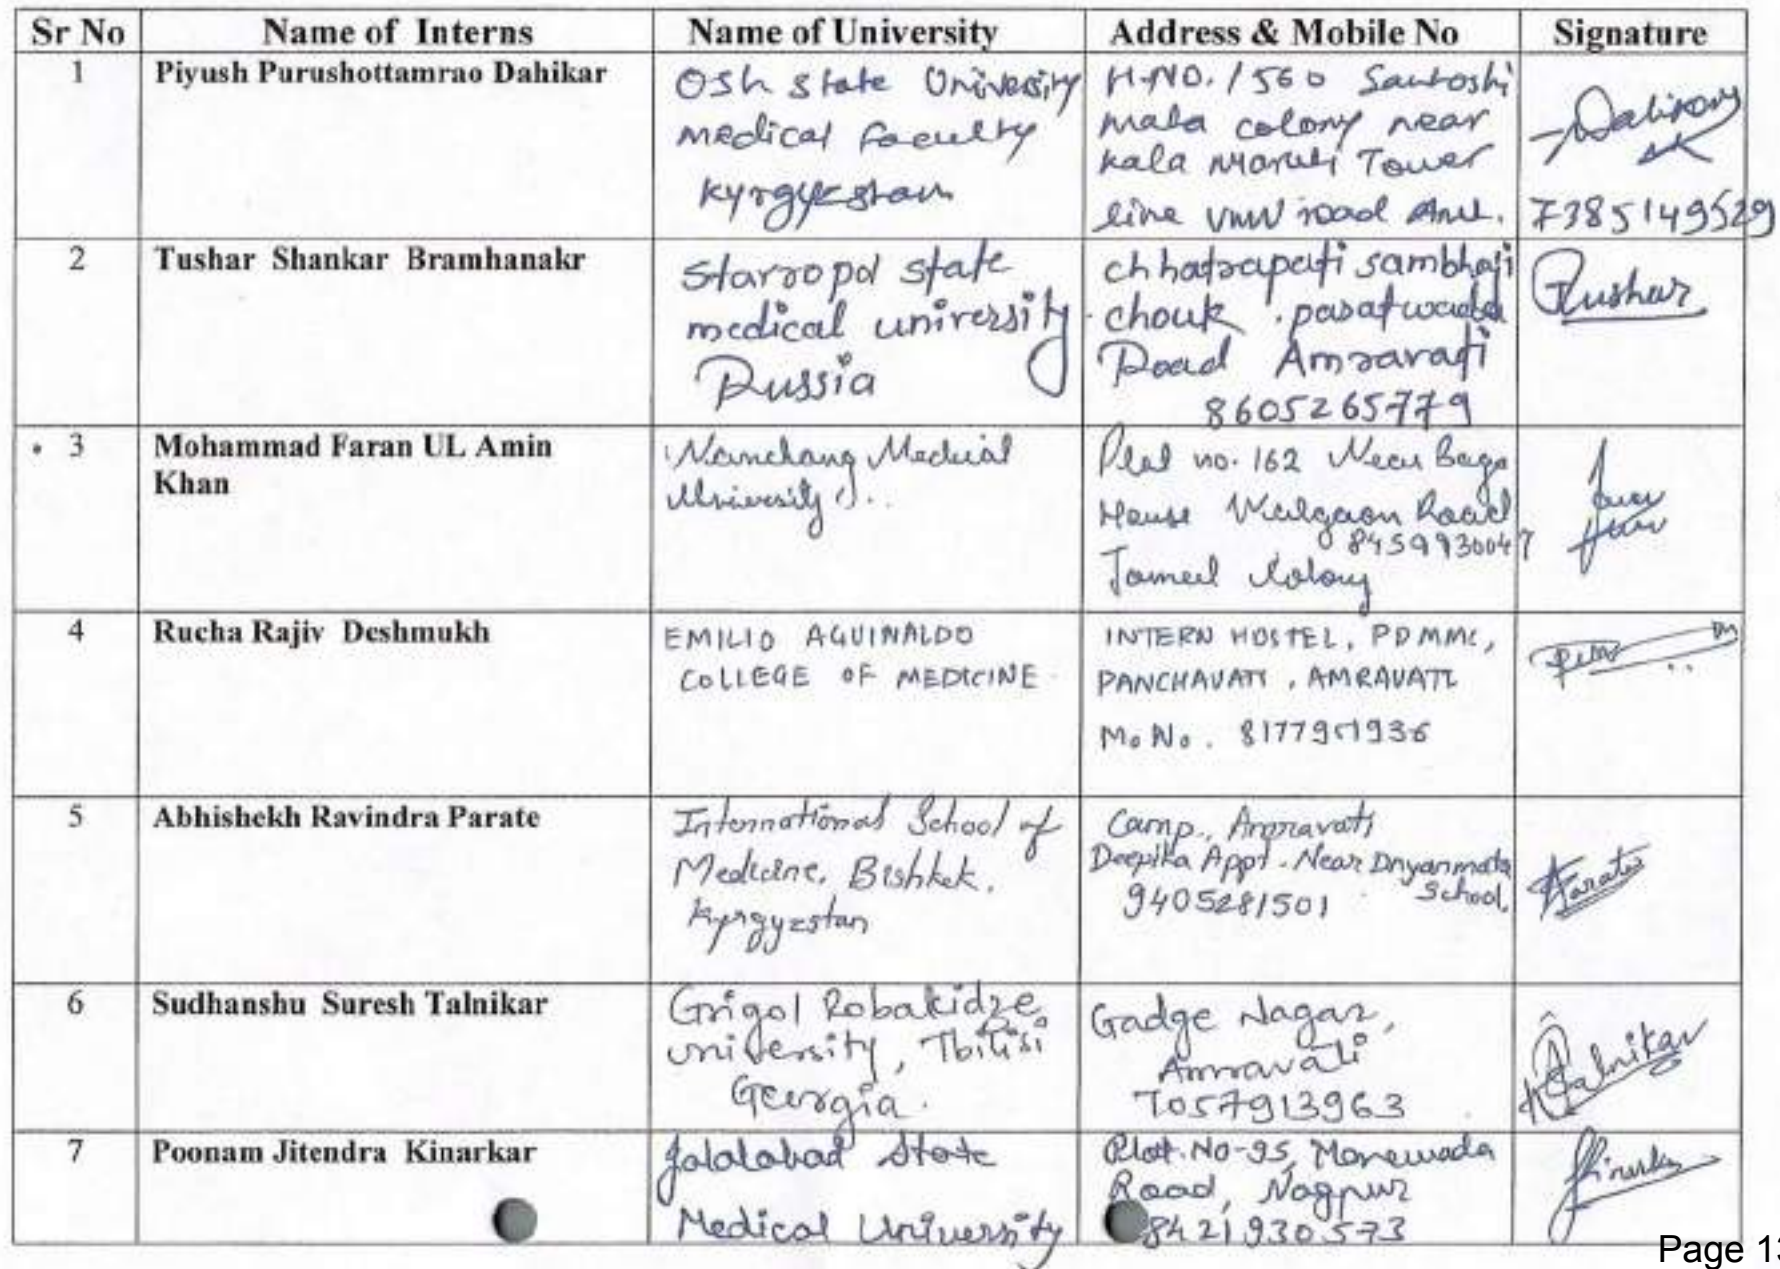 Sr No Name of Interns Name of University Address & Mobile No Signature
1 Piyush Purushottamrao Dahikar
Osh state University
medical faculty
kyrgyzstan
H.NO. / 560 Santoshi
mata colony near
kala Maruti Tower
line vmv road Amt.
7385149529
2 Tushar Shankar Bramhanakr
Stavropol state
medical university
Russia
chhatrapati sambhaji
chouk paratwada
Road Amravati
8605265779
Tushar
3 Mohammad Faran UL Amin
Khan
Nanchang Medical
University
Plot no. 162 Near
House Walgaon Road
8459930047
Jameel Colony
4 Rucha Rajiv Deshmukh
EMILIO AGUINALDO
COLLEGE OF MEDICINE
INTERN HOSTEL, PDMMC,
PANCHAVATI, AMRAVATI
Mo No. 8177951936
5 Abhishekh Ravindra Parate
International School of
Medicine, Bishkek,
Kyrgyzstan
Camp, Amravati
Deepika Appt. Near Dnyanmata
School.
9405281501
Parate
6 Sudhanshu Suresh Talnikar
Grigol Robakidze
university, Tbilisi
Georgia.
Gadge Nagar,
Amravati
7057913963
Talnikar
7 Poonam Jitendra Kinarkar
Jalalabad State
Medical University
Plot.No-95, Manewada
Road, Nagpur
8421930573
Page 13